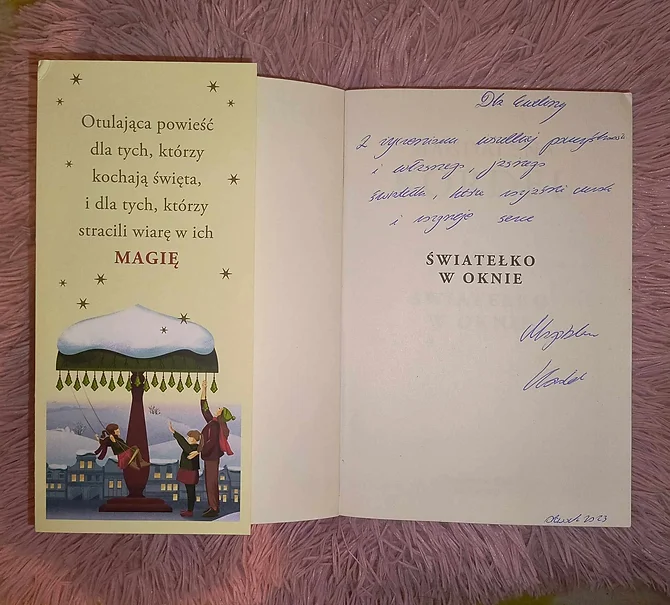 Otulająca powieść
dla tych, którzy
kochają święta,
i dla tych, którzy
stracili wiarę w ich
MAGIĘ
Dla Eweliny
Z życzeniami wszelkiej pomyślności
i własnego, jasnego
światełka, które rozjaśni mrok
i ogrzeje serce
ŚWIATEŁKO
W OKNIE
Magdalena
Kordel
2023